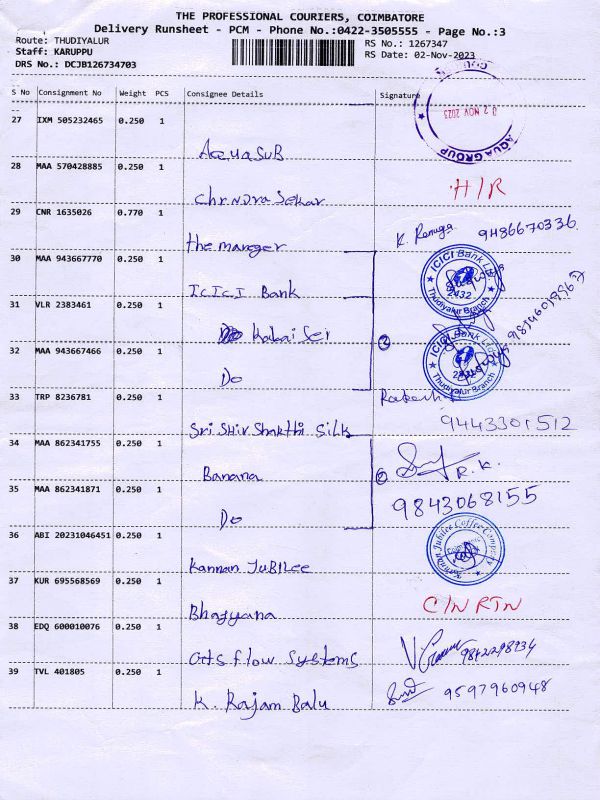 THE PROFESSIONAL COURIERS, COIMBATORE
Delivery Runsheet - PCM - Phone No.:0422-3505555 - Page No.:3
Route: THUDIYALUR
Staff: KARUPPU
DRS No.: DCJB126734703
RS No.: 1267347
RS Date: 02-Nov-2023
S No Consignment No Weight PCS Consignee Details Signature
27 IXM 505232465 0.250 1
AQUA GROUP
02 NOV 2023
AcquaSUB
28 MAA 570428885 0.250 1
H/R
Chendra Sekar
29 CNR 1635026 0.770 1
the manager
K. Renuga 9486670336
30 MAA 943667770 0.250 1
ICICI Bank
ICICI Bank Ltd
2432
Thudiyalur Branch
31 VLR 2383461 0.250 1
Do
32 MAA 943667466 0.250 1
Do
ICICI Bank Ltd
2432
Thudiyalur Branch
33 TRP 8236781 0.250 1
Rakesh
Sri Shiv Shakthi Silk
9443301512
34 MAA 862341755 0.250 1
Banana
R.K.
35 MAA 862341871 0.250 1
9843068155
Do
36 ABI 20231046451 0.250 1
Kannan Jubilee
Kannan Jubilee Coffee Company
37 KUR 695568569 0.250 1
C/N RTN
38 EDQ 600010076 0.250 1
flow Systems
9842298934
39 TVL 401805 0.250 1
K. Rajam Balu
9597960948